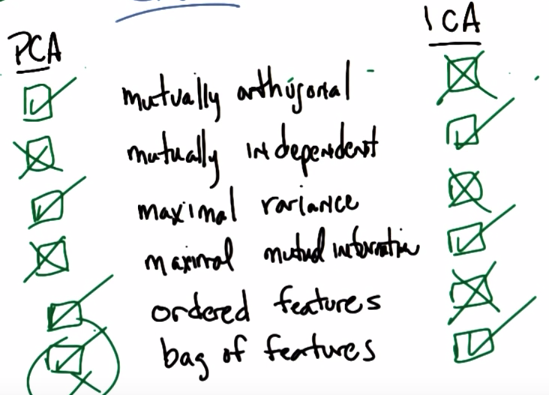 PCA ICA
mutually orthogonal
mutually independent
maximal variance
maximal mutual information
ordered features
bag of features